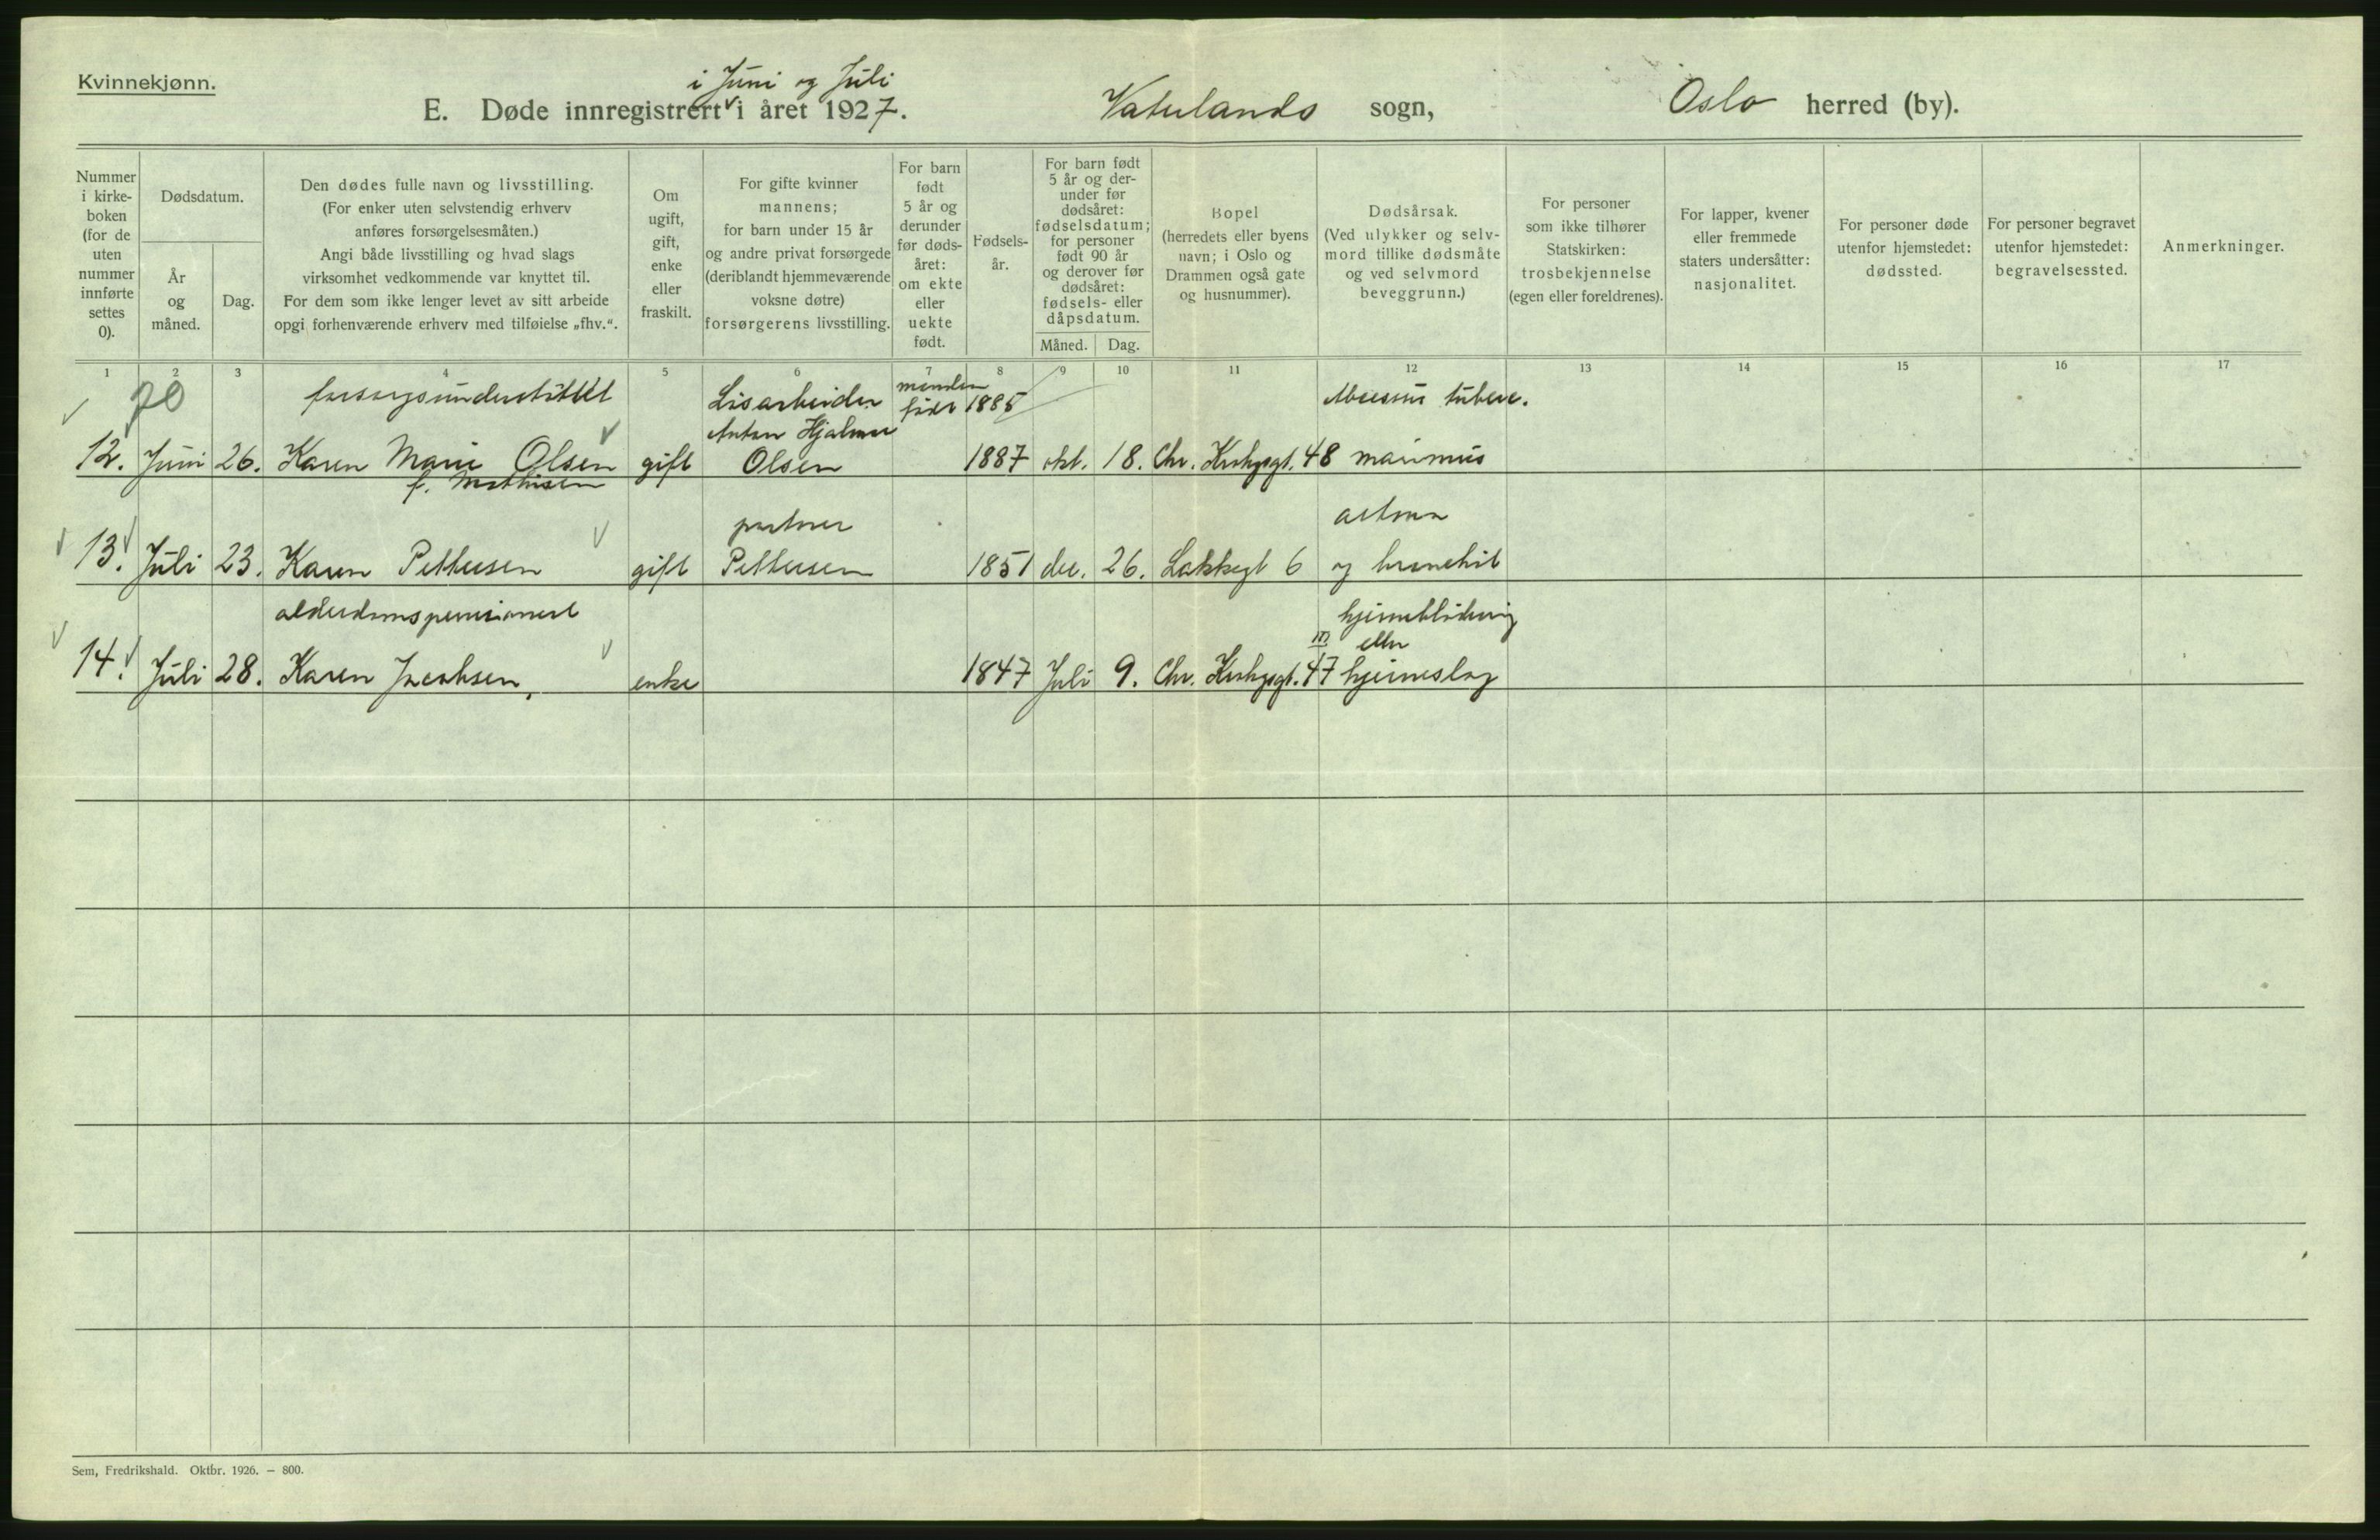 Kvinnekjønn.
i Juni og Juli
E. Døde innregistrert i året 1927. Vaterlands sogn, Oslo herred (by).
Nummer
i kirke-
boken
(for de
uten
nummer
innførte
settes
0).
Dødsdatum.
År
og
måned.
Dag.
Den dødes fulle navn og livsstilling.
(For enker uten selvstendig erhverv
anføres forsørgelsesmåten.)
Angi både livsstilling og hvad slags
virksomhet vedkommende var knyttet til.
For dem som ikke lenger levet av sitt arbeide
opgi forhenværende erhverv med tilføielse „fhv.“.
Om
ugift,
gift,
enke
eller
fraskilt.
For gifte kvinner
mannens;
for barn under 15 år
og andre privat forsørgede
(deriblandt hjemmeværende
voksne døtre)
forsørgerens livsstilling.
For barn
født
5 år og
derunder
før døds-
året:
om ekte
eller
uekte
født.
Fødsels-
år.
For barn født
5 år og der-
under før
dødsåret:
fødselsdatum;
for personer
født 90 år
og derover før
dødsåret:
fødsels- eller
dåpsdatum.
Måned. Dag.
Bopel
(herredets eller byens
navn; i Oslo og
Drammen også gate
og husnummer).
Dødsårsak.
(Ved ulykker og selv-
mord tillike dødsmåte
og ved selvmord
beveggrunn.)
For personer
som ikke tilhører
Statskirken:
trosbekjennelse
(egen eller foreldrenes).
For lapper, kvener
eller fremmede
staters undersåtter:
nasjonalitet.
For personer døde
utenfor hjemstedet:
dødssted.
For personer begravet
utenfor hjemstedet:
begravelsessted.
Anmerkninger.
1 2 3 4 5 6 7 8 9 10 11 12 13 14 15 16 17
20 forsorgsunderstøttet Løsarbeider manden født 1885 Abscessus tuberc.
Anton Hjalmar
12. Juni 26. Karen Marie Olsen gift Olsen 1887 okt. 18. Chr. Krohgsgt. 48
f. Mathisen
partner astma
13. Juli 23. Karen Pettersen gift Pettersen 1851 dec. 26. Lakkegt 6 og bronchit
alderdomspensionert hjerneblødning
III eller
14. Juli 28. Karen Jacobsen, enke 1847 Juli 9. Chr. Krohgsgt. 47 hjerneslag
Sem, Fredrikshald. Oktbr. 1926. — 800.